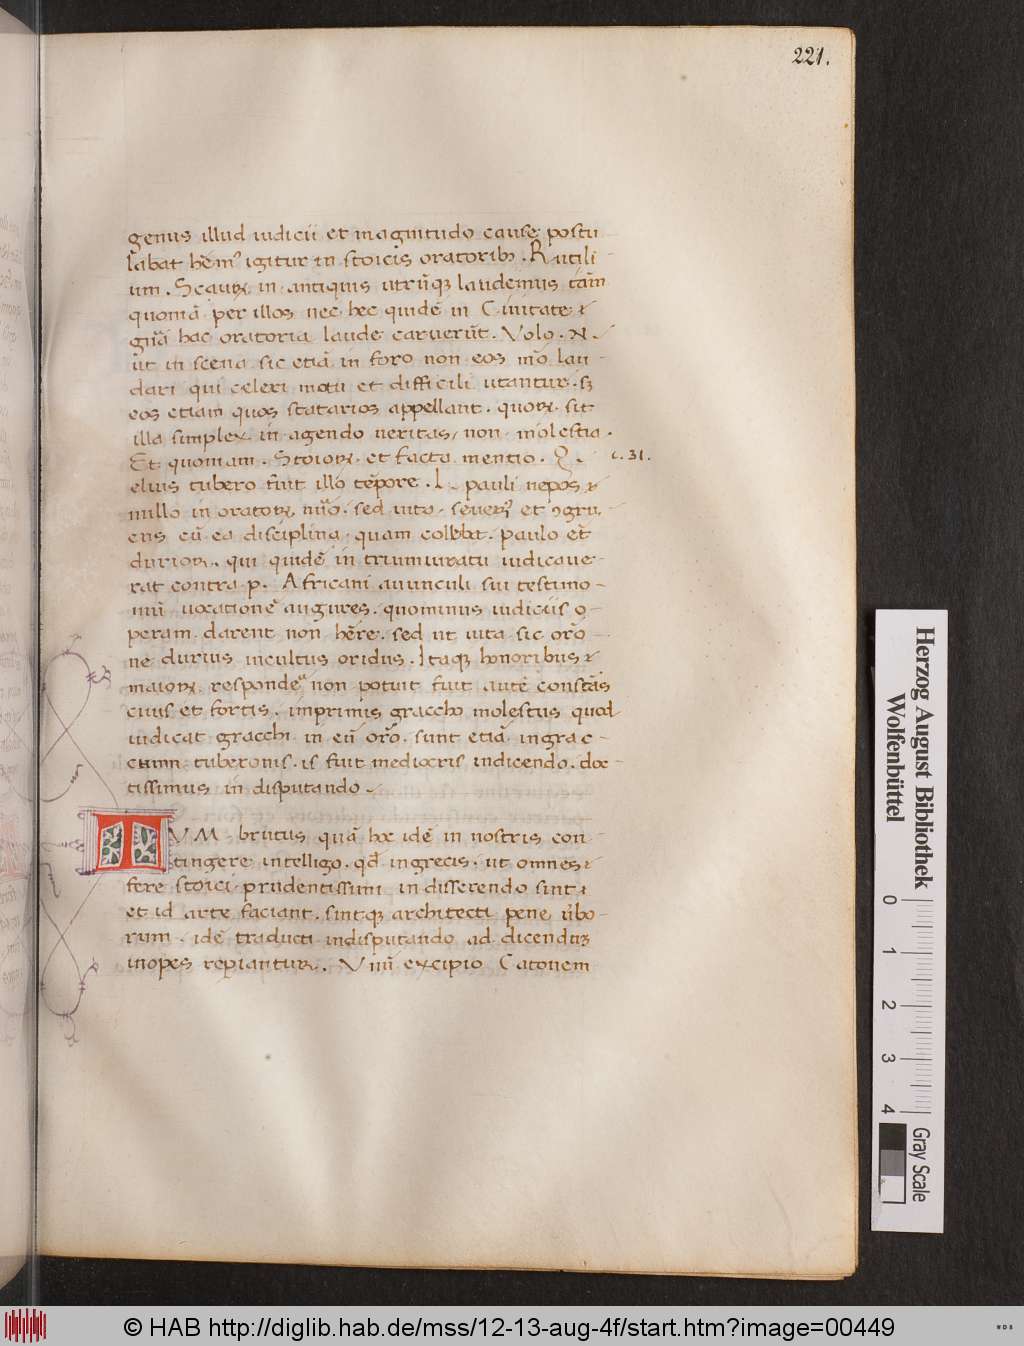 221.
genus illud iudicii et magnitudo cause postu
labat hēmꝰ igitur in stoicis oratoribꝫ. Rutili
um. Scauꝝ in antiquis utrūqꝫ laudemus tām̄
quoniā per illos nec hec quidē in Ciuitate
hac oratoria laude caruerūt. Volo.
ut in scena sic etiā in foro non eos mō lau
dari qui celeri motu et difficili utantur. sꝫ
eos etiam quos statarios appellant. quoꝝ. sit
illa simplex in agendo ueritas, non molestia.
Et quoniam. Stoioꝝ. et facta mentio. Q. c. 31.
elius tubero fuit illo tēpore. L. pauli nepos
nullo in oratoꝝ nūo. sed uita. seuerꝰ et ꝯgru
ens cū ea disciplina quam colebat. paulo et
durior. qui quidē in triumuiratu iudicaue
rat contra p. Africani auunculi sui testimo-
niū uocationē augures. quominus iudiciis o-
peram darent non hēre. sed ut uita sic orō
ne durius incultus oridus. Itaqꝫ honoribus
maioꝝ respondē non potuit fuit autē constās
ciuis et fortis. imprimis graccho molestus quod
iudicat gracchi in eū orō. sunt etiā ingrac-
cum tuberonis. is fuit mediocris indicendo. doc-
tissimus in disputando.
TVM brutus quā hoc idē in nostris con
tingere intelligo. qđ ingrecis. ut omnes
fere stoici prudentissimi in disserendo sint
et id arte faciant. sintqꝫ architecti pene ūbo-
rum. idē traducti indisputando ad dicendūꝫ
inopes reperiantur. Vnū excipio Catonem
Herzog August Bibliothek
Wolfenbüttel
0 1 2 3 4
Gray Scale
© HAB http://diglib.hab.de/mss/12-13-aug-4f/start.htm?image=00449